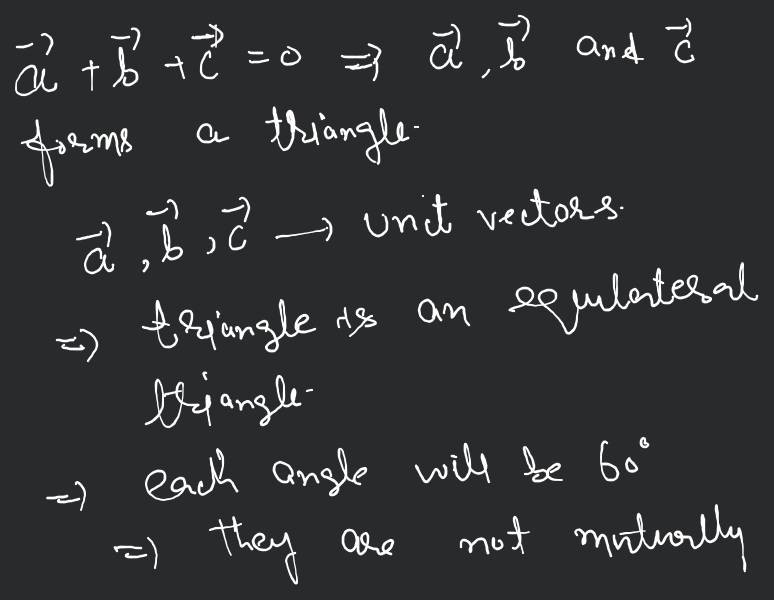 a⃗ + b⃗ + c⃗ = 0 ⇒ a⃗, b⃗ and c⃗
forms a triangle.
a⃗, b⃗, c⃗ → unit vectors.
⇒ triangle is an equilateral
triangle.
⇒ each angle will be 60°
⇒ they are not mutually